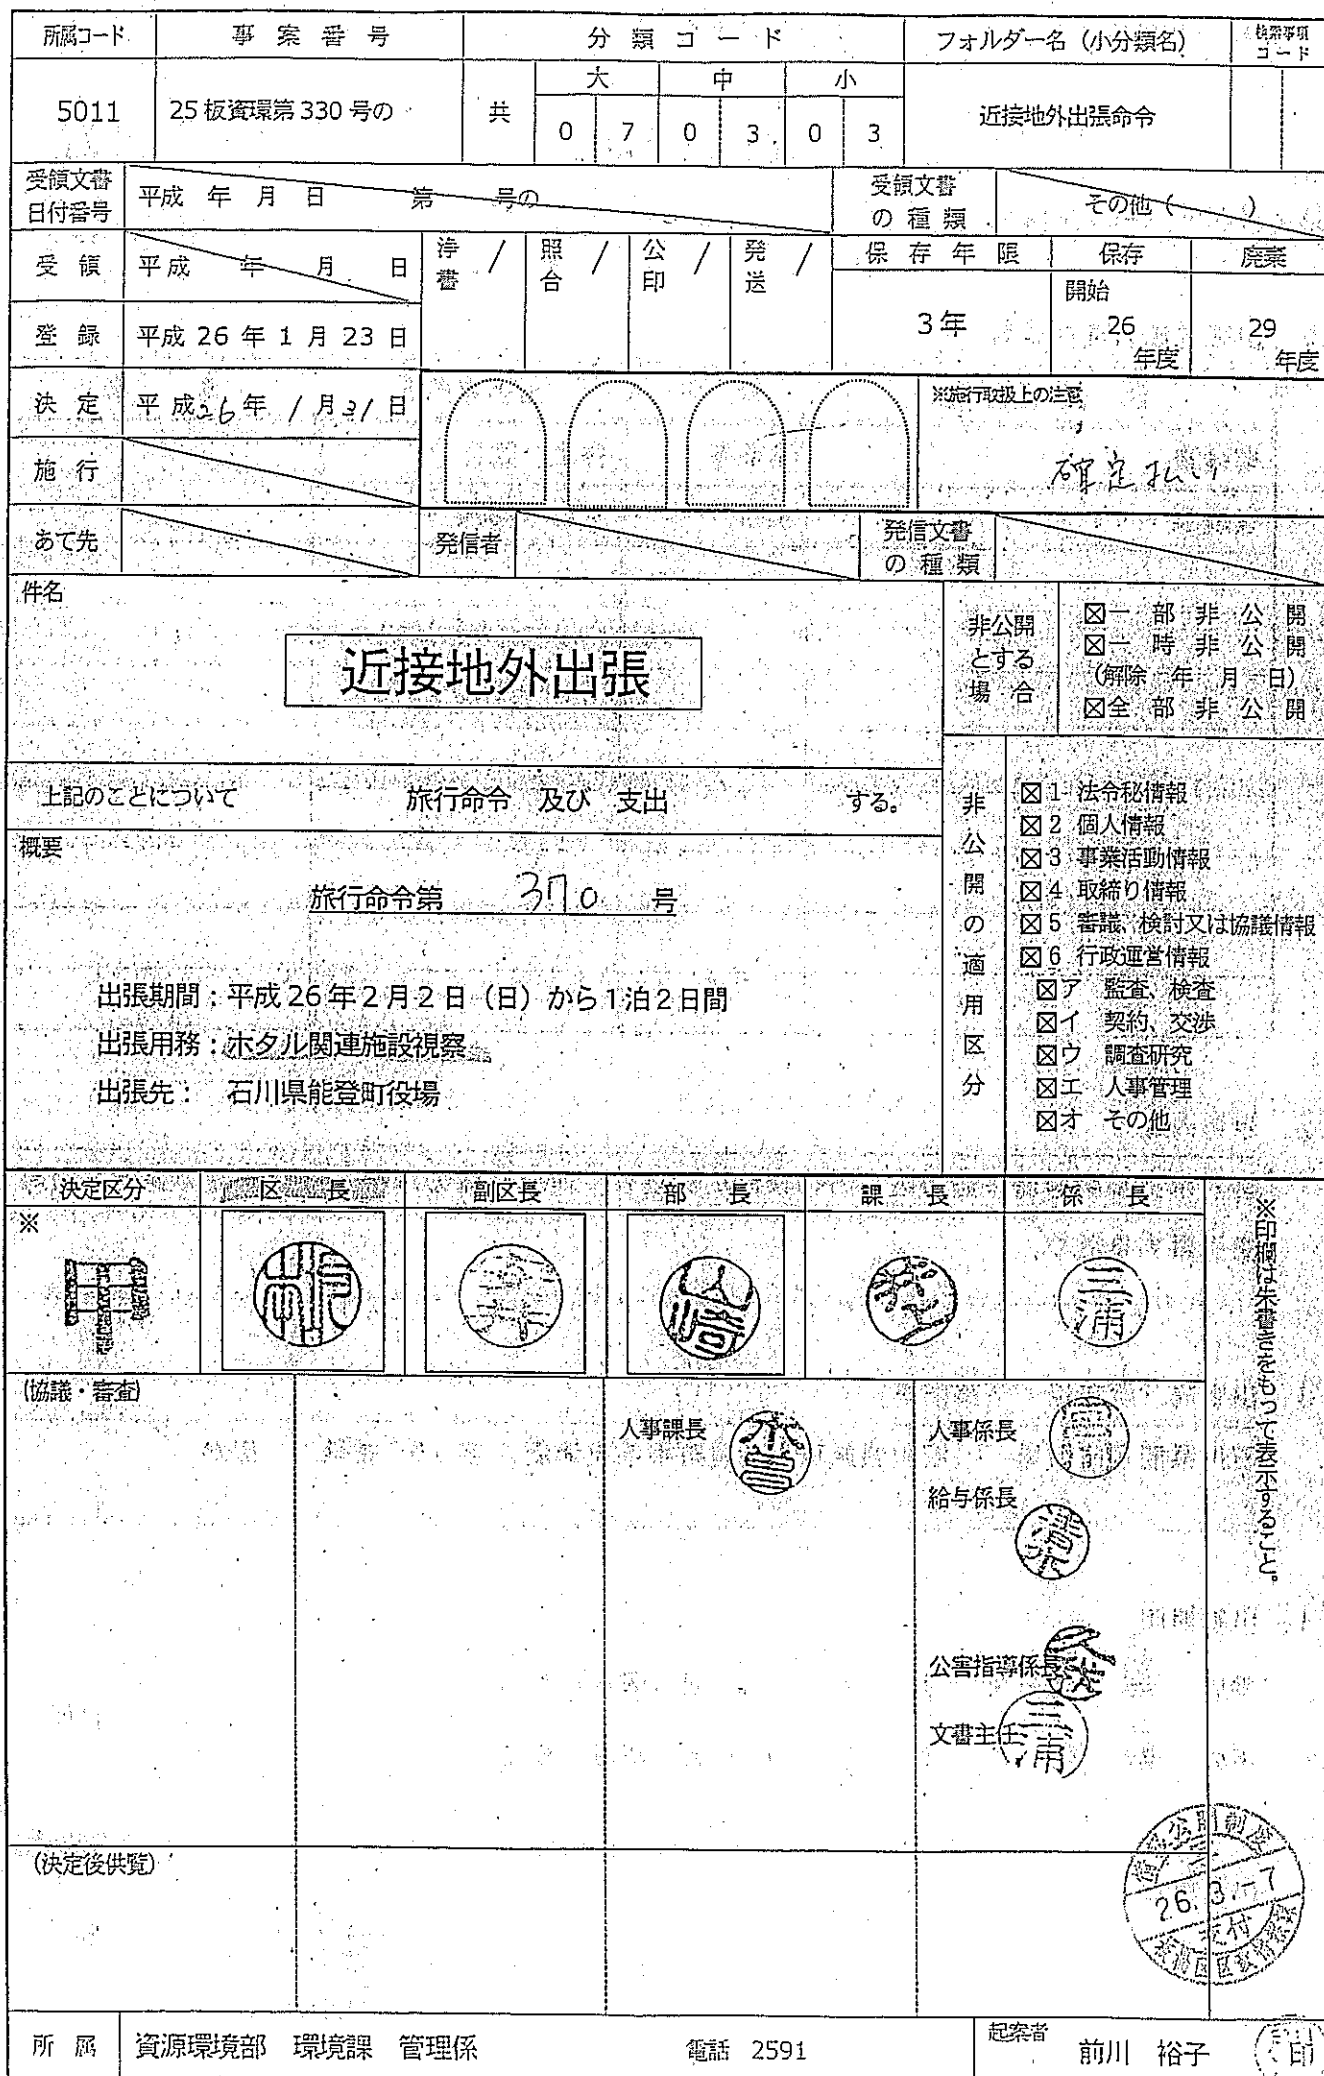 所属コード 事案番号 分類コード フォルダー名（小分類名） 検索事項コード
大 中 小
5011 25板資環第330号の 共 0 7 0 3 0 3 近接地外出張命令
受領文書日付番号 平成 年 月 日 第 号の 受領文書の種類 その他（ ）
受領 平成 年 月 日 浄書 / 照合 / 公印 / 発送 / 保存年限 保存 廃棄
登録 平成 26 年 1 月 23 日 3年 開始 26 年度 29 年度
決定 平成26年 1月31日 ※施行取扱上の注意
施行 確定払い
あて先 発信者 発信文書の種類
件名
近接地外出張
非公開とする場合
☒一部非公開
☒一時非公開
（解除 年 月 日）
☒全部非公開
上記のことについて 旅行命令 及び 支出 する。
概要
旅行命令第 370 号
出張期間：平成26年2月2日（日）から1泊2日間
出張用務：ホタル関連施設視察
出張先： 石川県能登町役場
非公開の適用区分
☒1 法令秘情報
☒2 個人情報
☒3 事業活動情報
☒4 取締り情報
☒5 審議、検討又は協議情報
☒6 行政運営情報
☒ア 監査、検査
☒イ 契約、交渉
☒ウ 調査研究
☒エ 人事管理
☒オ その他
決定区分 区長 副区長 部長 課長 係長
※ 甲 山崎 井上 三浦
※印欄は朱書きをもって表示すること。
（協議・審査）
人事課長 人事係長
給与係長 清水
公害指導係長
文書主任 三浦
（決定後供覧）
26.3.-7
交付
所属 資源環境部 環境課 管理係 電話 2591 起案者 前川 裕子 印